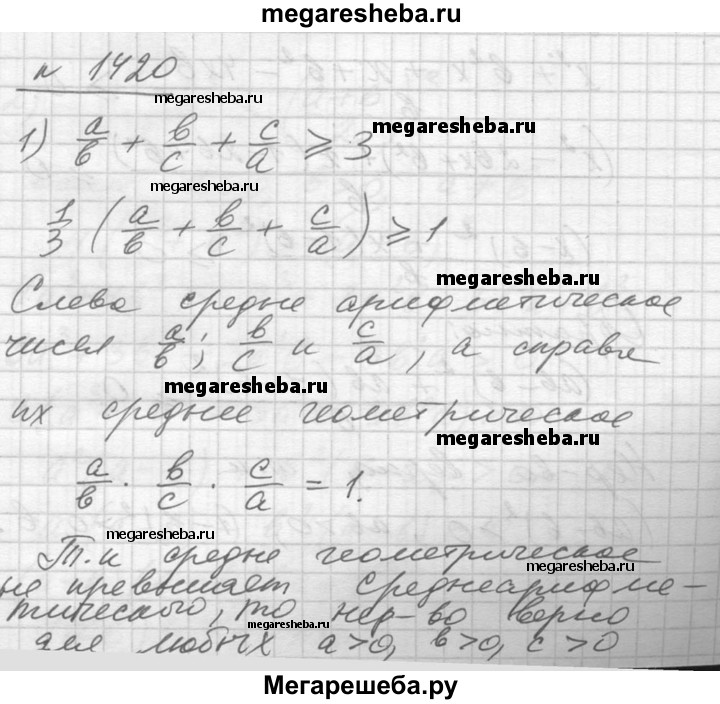 megaresheba.ru
N 1420
megaresheba.ru
1) a/в + в/c + c/a ⩾ 3
megaresheba.ru
megaresheba.ru
1/3 (a/в + в/c + c/a) ⩾ 1
megaresheba.ru
Слева средне арифметическое
чисел a/в; в/c и c/a, а справа
megaresheba.ru
их среднее геометрическое
megaresheba.ru
a/в · в/c · c/a = 1.
megaresheba.ru
Т.к средне геометрическое
megaresheba.ru
не превышает среднеарифме-
тического, то нер-во верно
megaresheba.ru
для любых a>0, в>0, c>0
Мегарешеба.ру